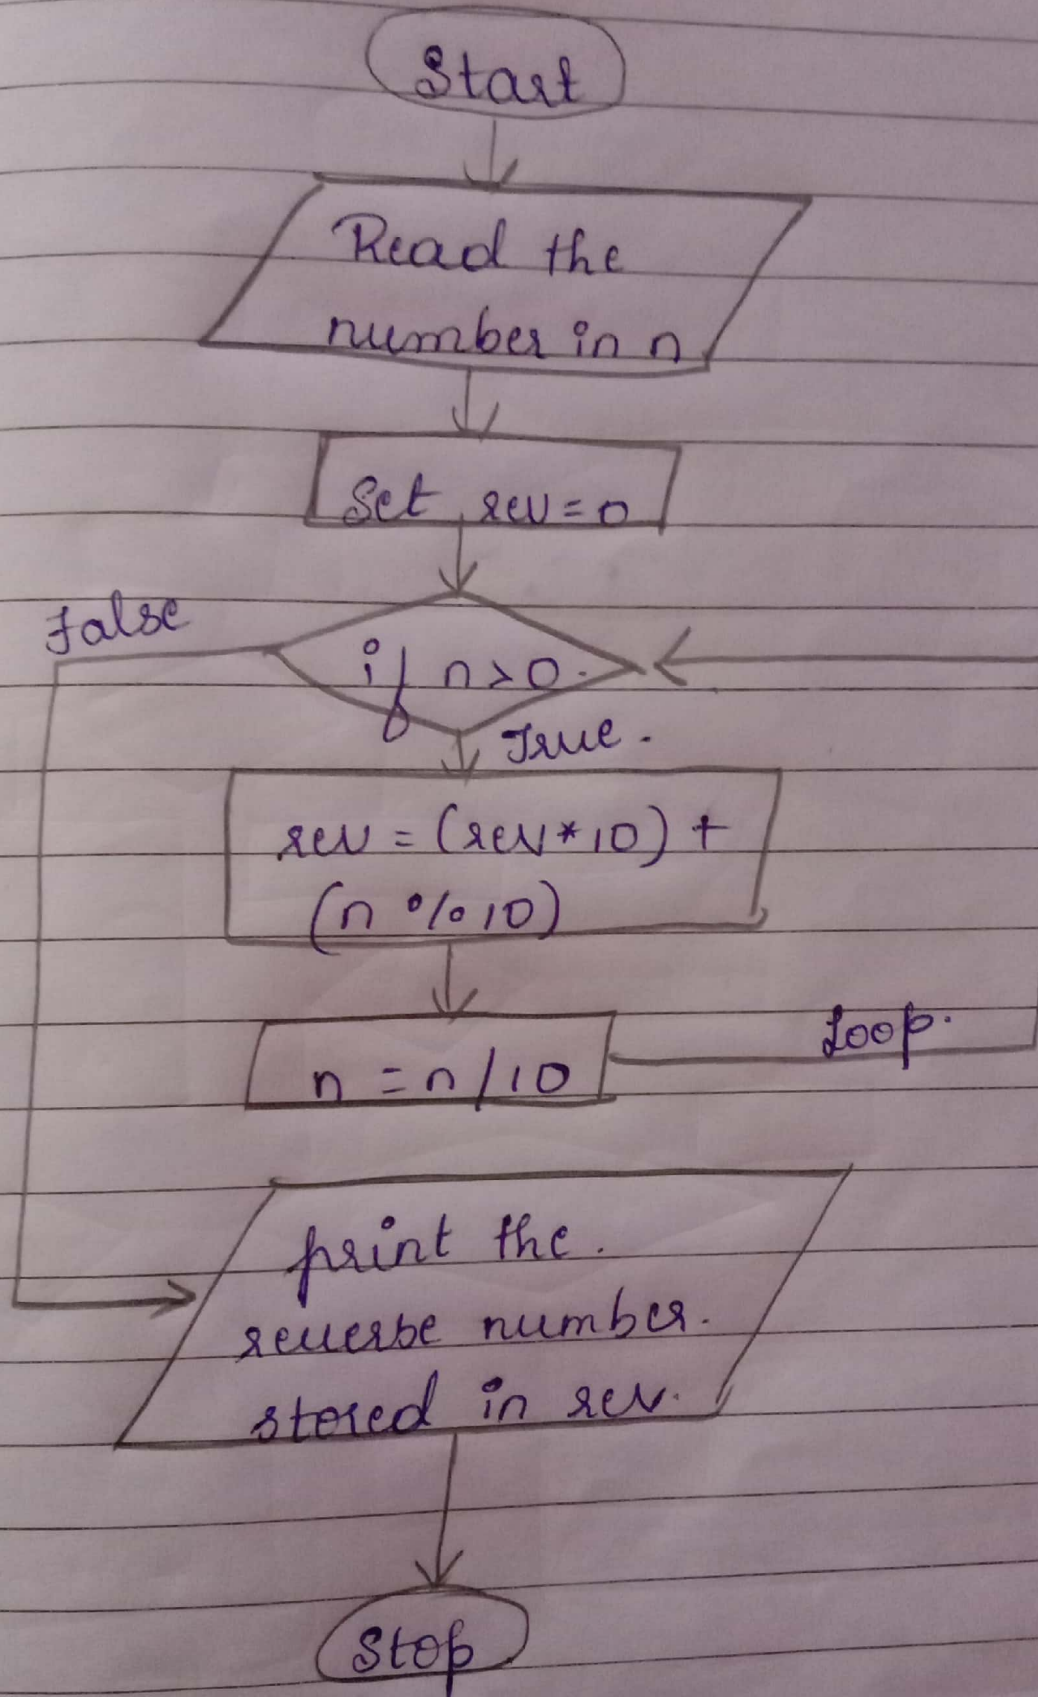 Start
Read the
number in n
Set rev=0
False
if n>0.
True.
rev = (rev*10) +
(n %10)
Loop.
n = n/10
print the.
reverse number.
stored in rev.
Stop